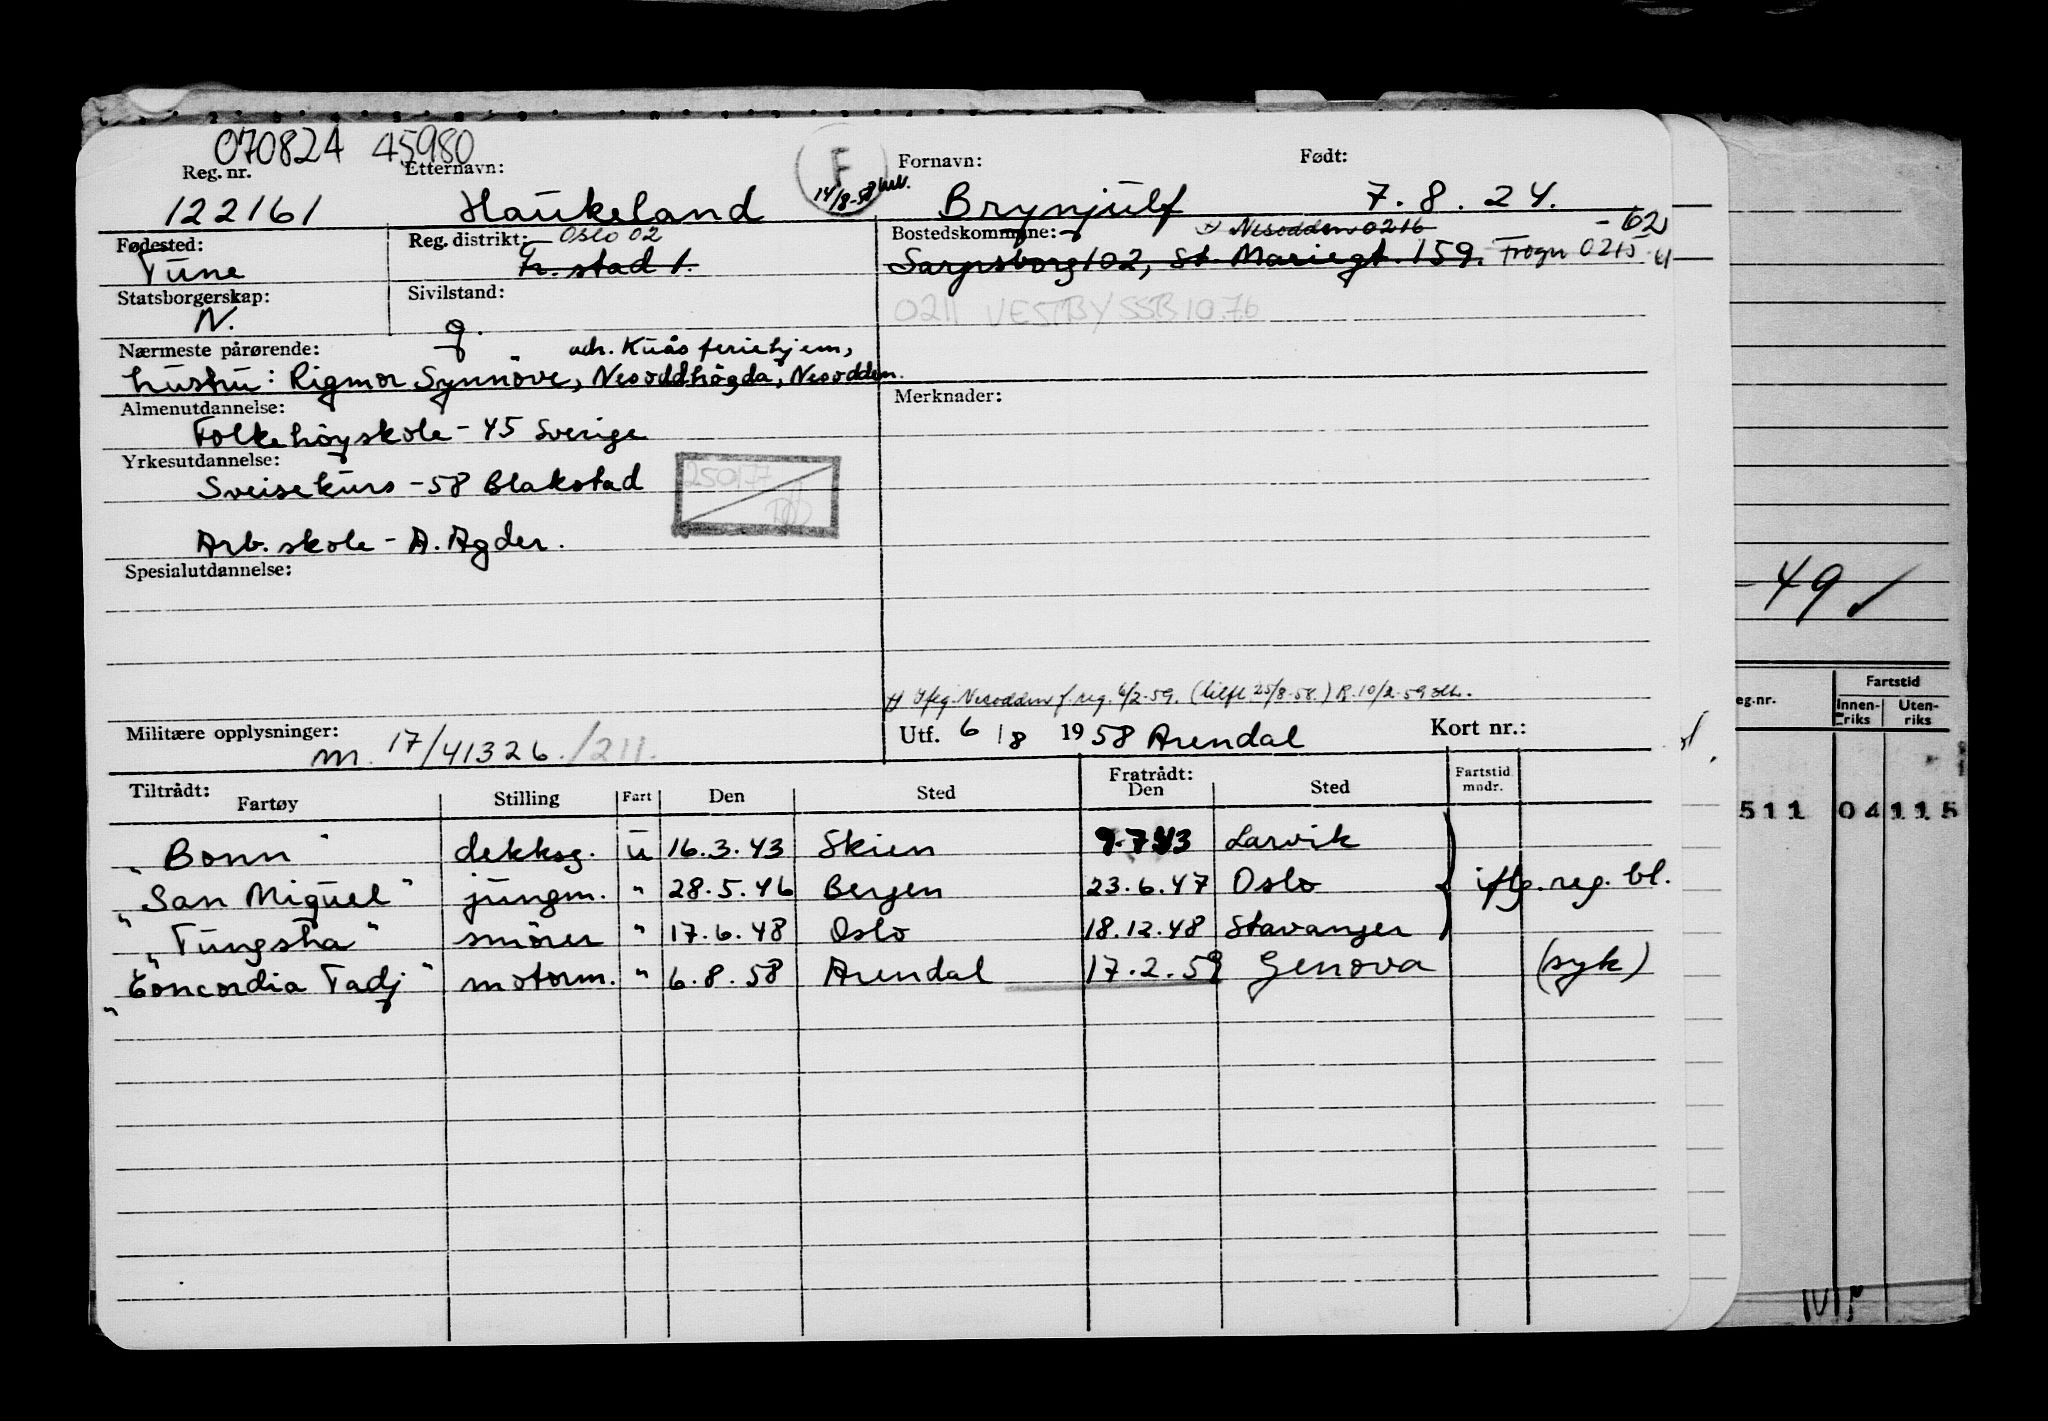 070824 45980
Reg. nr. Etternavn: F Fornavn: Født:
122161 Haukeland 14/8-58 Brynjulf 7.8.24.
Fødested: Reg. distrikt: Oslo 02 Bostedskommune: Nesodden 0216 -62
Tune Fr.stad 1. Sarpsborg 102, St. Mariegt. 159. Frogn 0215
Statsborgerskap: Sivilstand:
N. g. 0211 VESTBY SSB 10.76
Nærmeste pårørende: adr. Kuås feriehjem,
hustru: Rigmor Synnöve, Nesoddhögda, Nesodden.
Almenutdannelse: Merknader:
Folkehöyskole - 45 Sverige
Yrkesutdannelse:
Sveisekurs - 58 Blakstad
250177
Arb. skole - A. Agder.
Spesialutdannelse:
Nesodden f.reg. 6/2-59. 25/8-58.) R. 10/2-59
Militære opplysninger: Utf. 6/8 1958 Arendal Kort nr.:
m. 17/41326./211.
Tiltrådt: Fratrådt: Fartstid
Fartøy Stilling Fart Den Sted Den Sted mndr.
"Bonn" dekksg. u 16.3.43 Skien 9.7.43 Larvik
"San Miguel" jungm. " 28.5.46 Bergen 23.6.47 Oslo iflg. reg. bl.
"Tungsha" smörer " 17.6.48 Oslo 18.12.48 Stavanger
"Concordia Tadj" motorm. " 6.8.58 Arendal 17.2.59 Genova (syk)
-49
eg.nr. Fartstid
Innen-riks Uten-riks
511 04 115